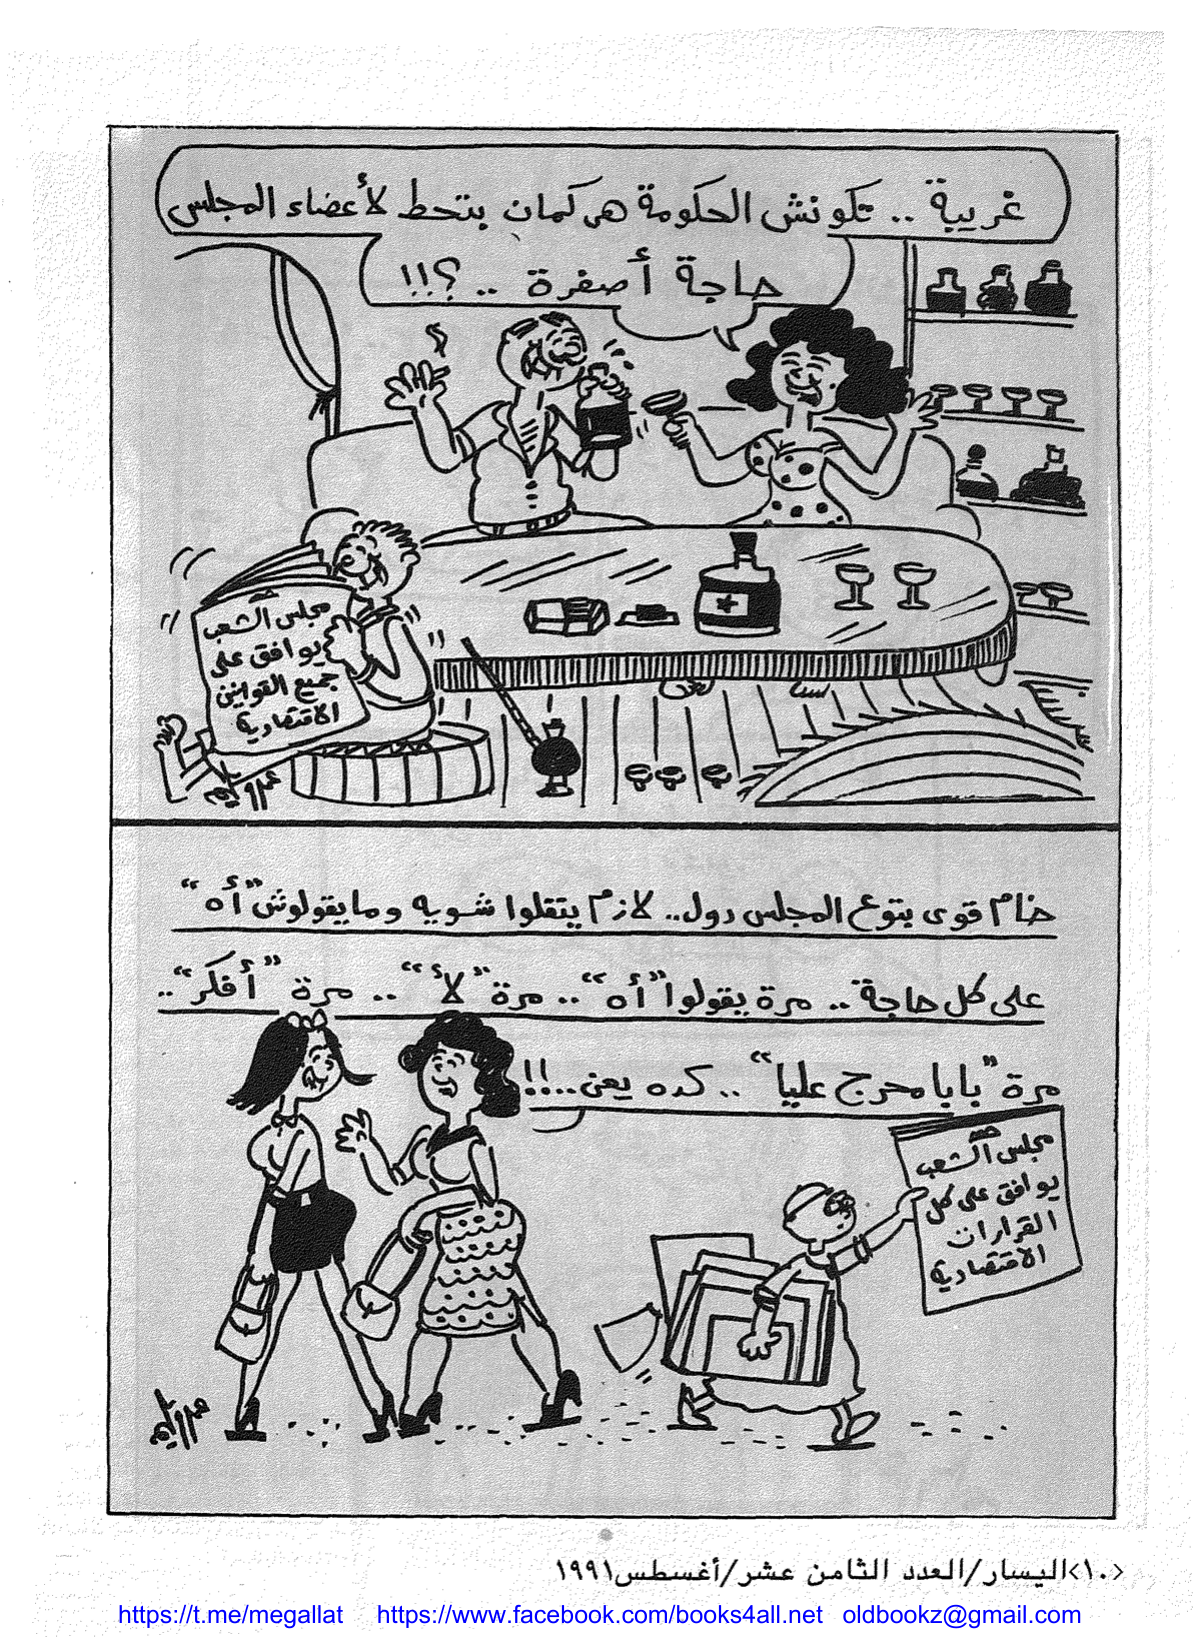 غريبة .. تكونش الحكومة هى كمان بتحط لأعضاء المجلس
حاجة أصفرة .. ؟!!
مجلس الشعب
يوافق على
جميع القوانين
الاقتصادية
عمرو سليم
خام قوى بتوع المجلس دول.. لازم يتقلوا شويه وما يقولوش "أه"
على كل حاجة .. مرة يقولوا "أه" .. مرة "لأ" .. مرة "أفكر" ..
مرة "بابا محرج عليا" .. كده يعنى..!!
مجلس الشعب
يوافق على كل
القرارات
الاقتصادية
عمرو سليم
<١٠>اليسار/العدد الثامن عشر/أغسطس١٩٩١
https://t.me/megallat https://www.facebook.com/books4all.net oldbookz@gmail.com